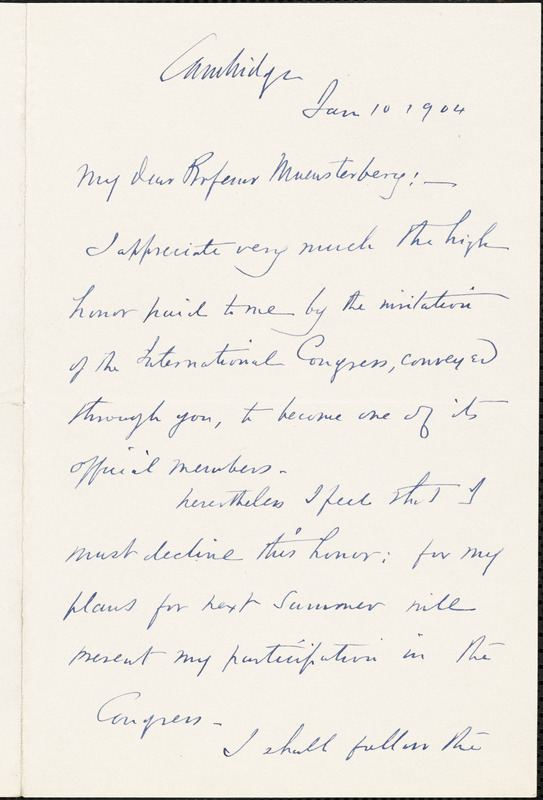 Cambridge
Jan 10 1904
My dear Professor Muensterberg! —
I appreciate very much the high
honor paid to me by the invitation
of the International Congress, conveyed
through you, to become one of its
official members.
Nevertheless I feel that I
must decline this honor; for my
plans for next Summer will
prevent my participation in the
Congress.
I shall follow the